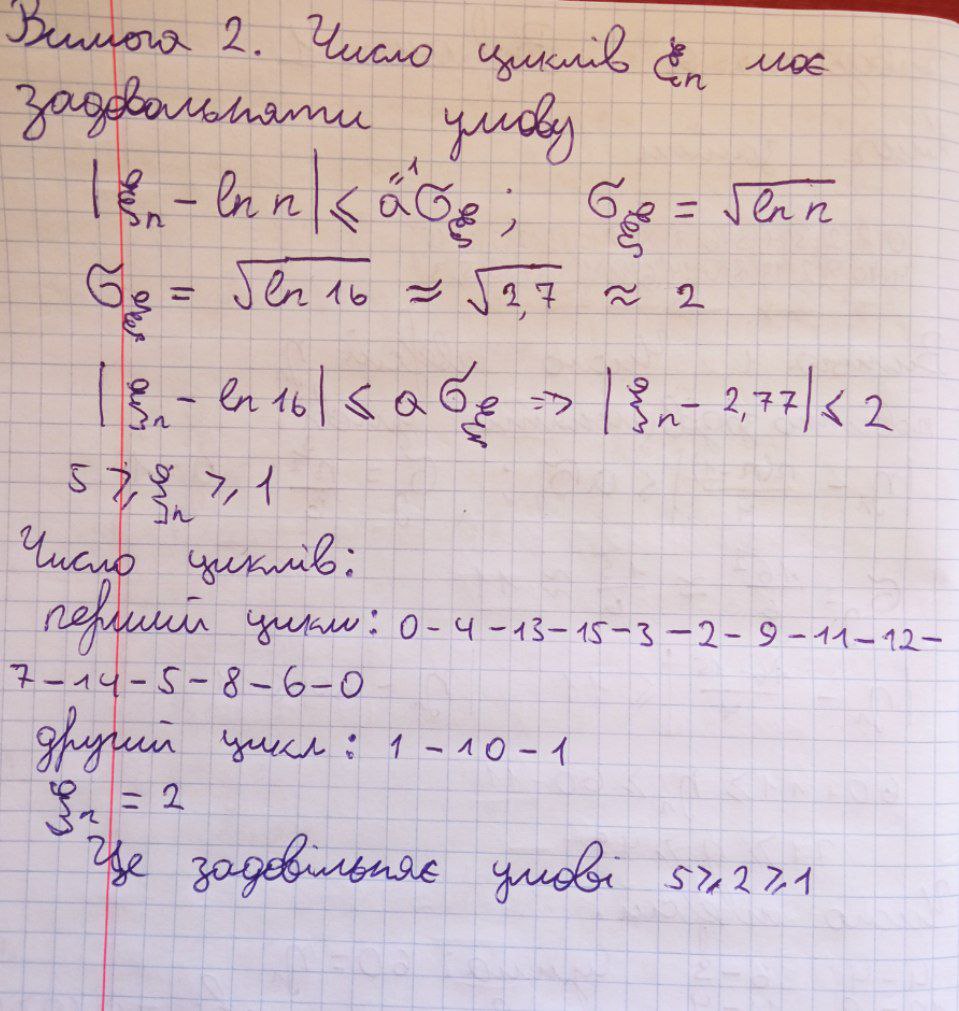 Вимога 2. Число циклів ξn має
задовольняти умову
|ξn - ln n| ⩽ a"1 σξ ; σξ = √ln n
σξ = √ln 16 ≈ √2,7 ≈ 2
|ξn - ln 16| ⩽ a σξ => |ξn - 2,77| ⩽ 2
5 ⩾ ξn ⩾ 1
Число циклів:
перший цикл: 0-4-13-15-3-2-9-11-12-
7-14-5-8-6-0
другий цикл: 1-10-1
ξn = 2
Це задовільняє умові 5⩾2⩾1